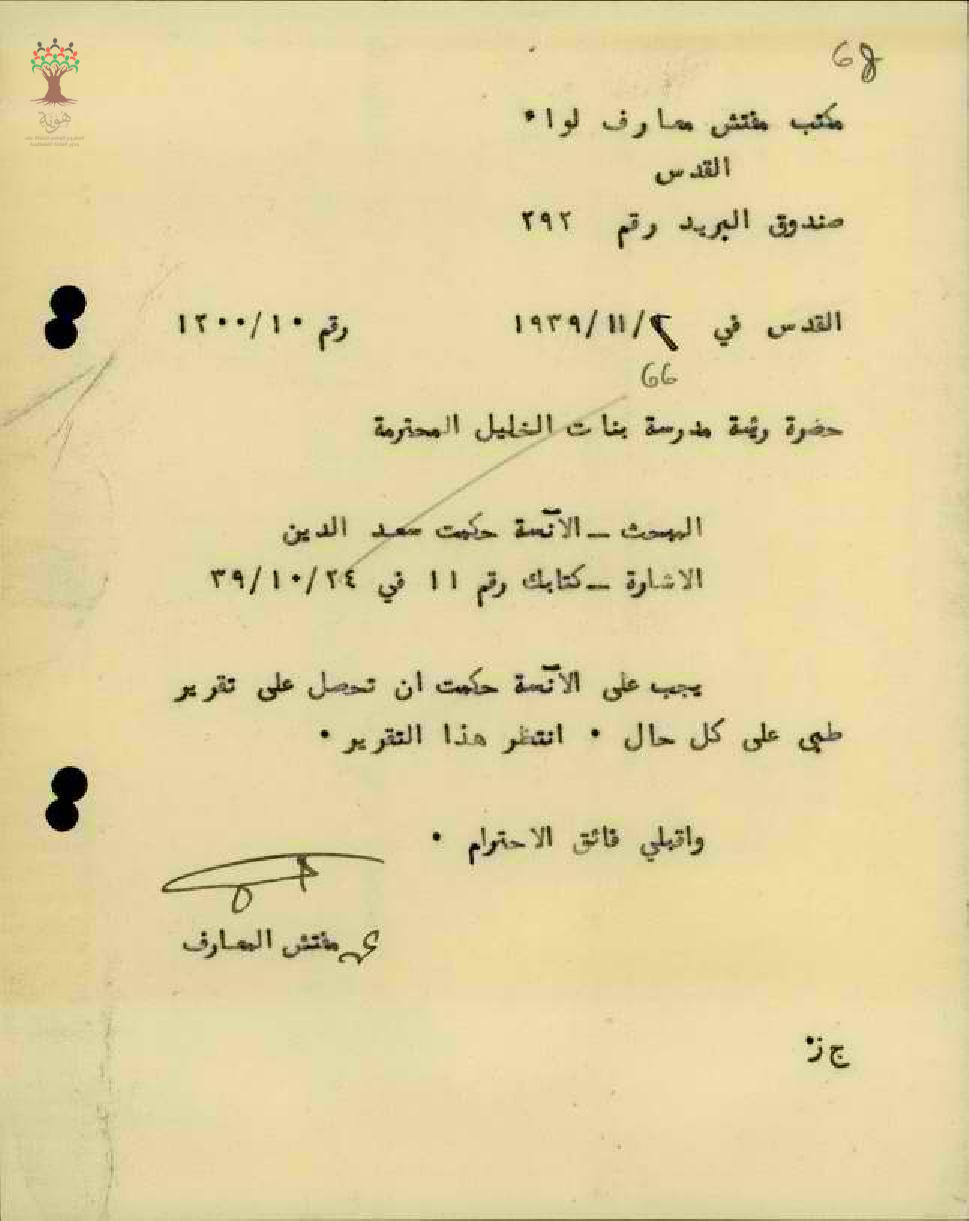 68
هوية
مكتب مفتش معارف لواء
القدس
صندوق البريد رقم ٢٩٢
القدس في ٢/١١/١٩٣٩ رقم ١٢٠٠/١٠
66
حضرة رئيسة مدرسة بنات الخليل المحترمة
المبحث ــ الآنسة حكمت سعد الدين
الاشارة ــ كتابك رقم ١١ في ٣٩/١٠/٢٤
يجب على الآنسة حكمت ان تحصل على تقرير
طبي على كل حال ٠ انتظر هذا التقرير ٠
واقبلي فائق الاحترام ٠
ع مفتش المعارف
ج ز٠